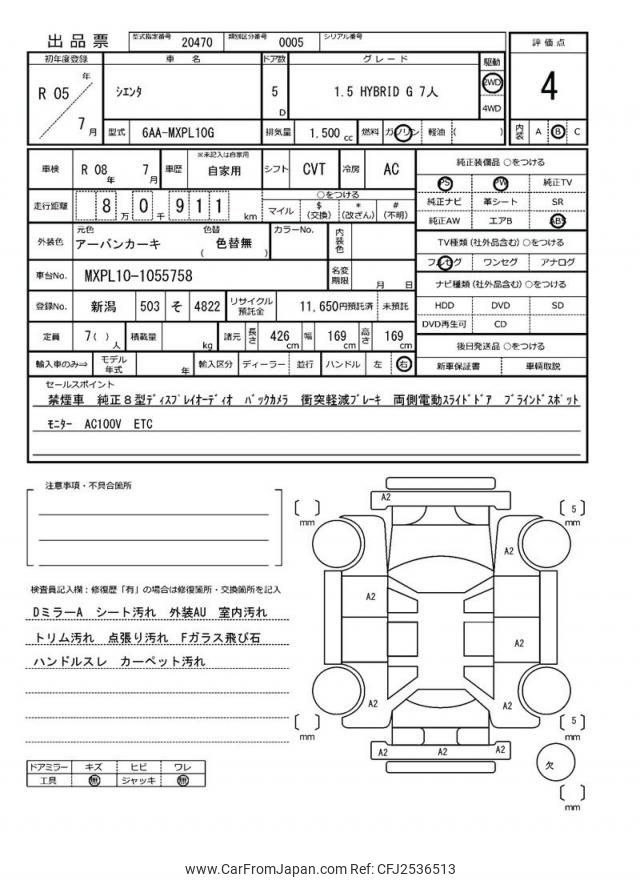 出品票 型式指定番号 20470 類別区分番号 0005 シリアル番号
初年度登録 車名 ドア数 グレード 駆動 評価点
R 05 年 7 月 シエンタ 5 D 1.5 HYBRID G 7人 2WD 4WD 4
型式 6AA-MXPL10G 排気量 1,500 cc 燃料 ガソリン 軽油 ( ) 内装 A B C
車検 R 08 年 7 月 車歴 ※未記入は自家用 自家用 シフト CVT 冷房 AC 純正装備品 ○をつける
PS PW 純正TV
走行距離 8 万 0 千 9 1 1 km ○をつける マイル $ (交換) * (改ざん) # (不明) 純正ナビ 革シート SR
純正AW エアB ABS
外装色 元色 アーバンカーキ 色替 ( 色替無 ) カラーNo. 内装色 TV種類 (社外品含む) ○をつける
フルセグ ワンセグ アナログ
車台No. MXPL10-1055758 名変期限 月 日 ナビ種類 (社外品含む) ○をつける
登録No. 新潟 503 そ 4822 リサイクル預託金 11,650円預託済 未預託 HDD DVD SD
DVD再生可 CD
定員 7( ) 人 積載量 kg 諸元 長さ 426 cm 幅 169 cm 高さ 169 cm 後日発送品 ○をつける
輸入車のみ⇒ モデル年式 年 輸入区分 ディーラー 並行 ハンドル 左 右 新車保証書 車輌取説
セールスポイント
禁煙車 純正8型ディスプレイオーディオ バックカメラ 衝突軽減ブレーキ 両側電動スライドドア ブラインドスポット
モニター AC100V ETC
注意事項・不具合箇所
検査員記入欄：修復歴「有」の場合は修復箇所・交換箇所を記入
DミラーA シート汚れ 外装AU 室内汚れ
トリム汚れ 点張り汚れ Fガラス飛び石
ハンドルスレ カーペット汚れ
ドアミラー キズ ヒビ ワレ
工具 無 ジャッキ 無
A2
[ ] mm [ 5 ] mm
A2
A2
A2
A2 A2
[ ] mm [ 5 ] mm
A2 A2 A2
欠
[ ] mm
www.CarFromJapan.com Ref: CFJ2536513